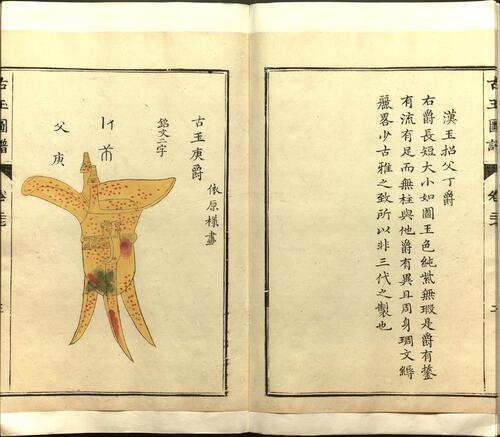 漢玉招父丁爵
右爵長短大小如圖玉色純紫無瑕是爵有鋬
有流有足而無柱與他爵有異且周身琱文縟
麗畧少古雅之致所以非三代之製也
古玉庚爵
依原樣畫
銘文二字
父庚
古玉圖譜